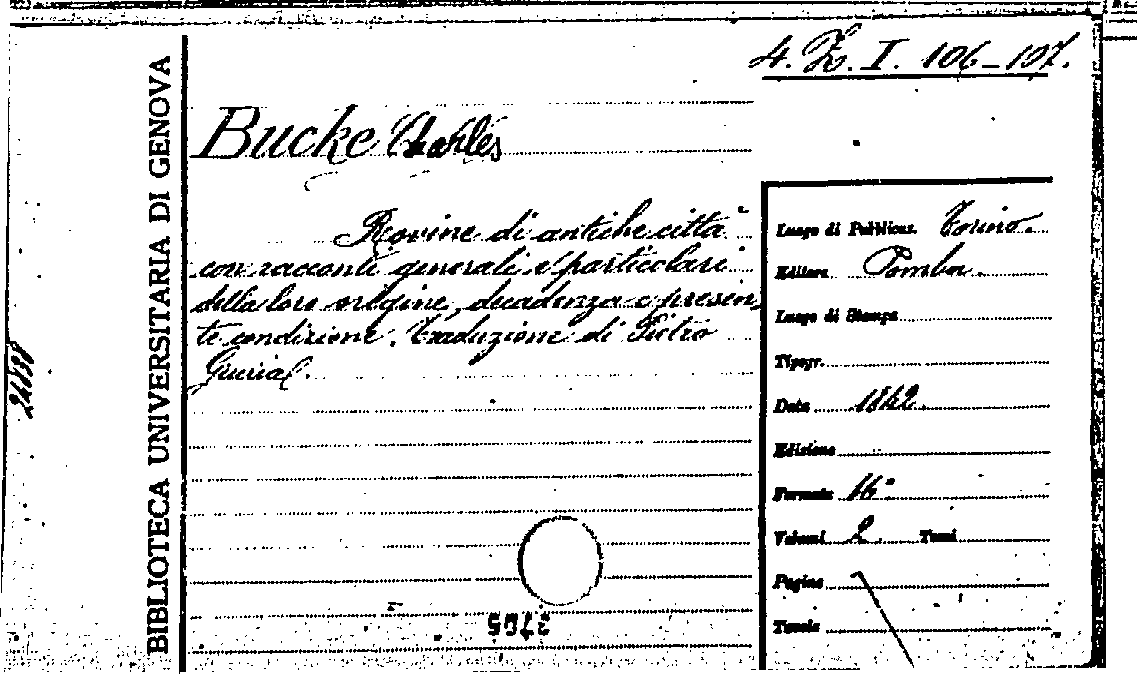 4. Z. I. 106-107.
BIBLIOTECA UNIVERSITARIA DI GENOVA
Bucke Charles
Rovine di antiche città
con racconti generali e particolari
della loro origine, decadenza e presen
te condizione. Traduzione di Pietro
Luogo di Pubblicaz. Torino.
Editore Pomba.
Luogo di Stampa
Tipogr.
Data 1842
Edizione
Formato 16°
Volumi 2 Tomi
Pagine
Tavole